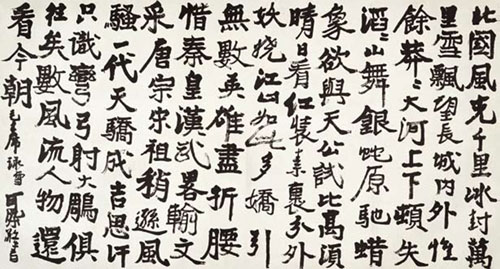 北国風光千里冰封萬
里雪飄望長城内外惟
餘莽々大河上下頓失
滔々山舞銀蛇原馳蜡
象欲與天公試比高須
晴日看紅裝素裹分外
妖嬈江山如此多嬌引
無數英雄盡折腰
惜秦皇漢武畧輸文
采唐宗宋祖稍遜風
騷一代天驕成吉思汗
只識彎弓射大鵰俱
往矣數風流人物還
看今朝 毛主席詠雪